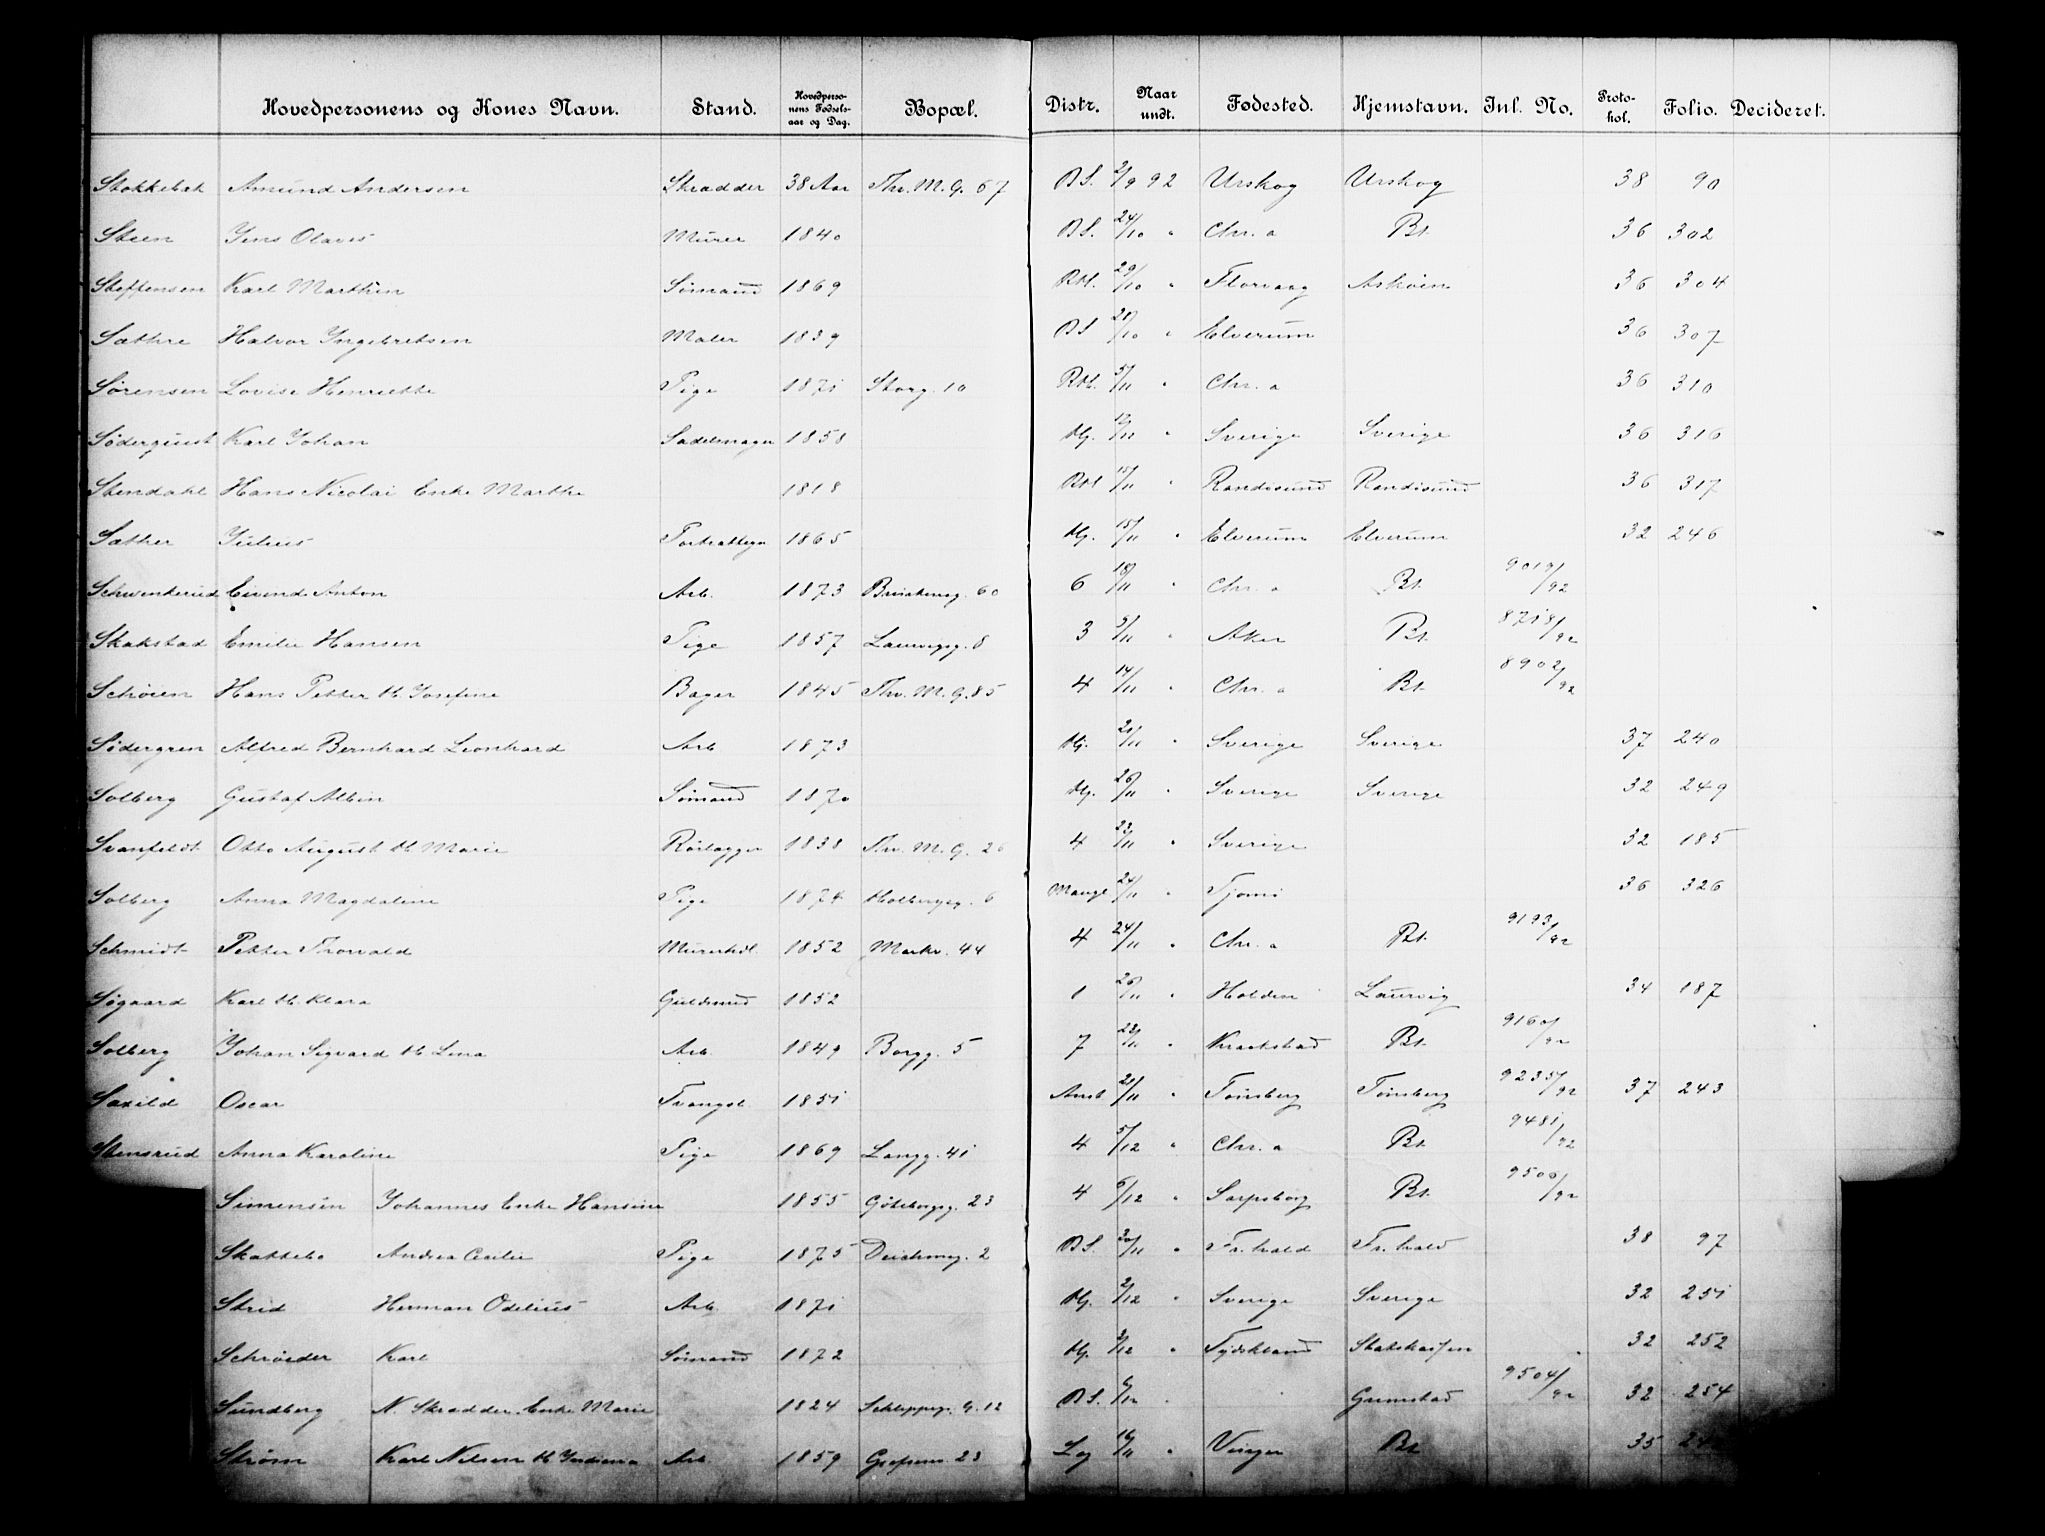 Hovedpersonens og Kones Navn. Stand. Hovedpersonens Fødselsaar og Dag. Bopæl. Distr. Naar undt. Fødested. Hjemstavn. Inl. No. Protokol. Folio. Decideret.
Stokkebæk Amund Andersen Skrædder 38 Aar Thv. M. G. 67 BS. 2/9 92 Urskog Urskog 38 90
Steen Jens Olaves Murer 1840 BS. 24/10 " Chr. a Bt. 36 302
Steffensen Karl Marthin Sømand 1869 RH. 29/10 " Florvaag Askøen 36 304
Sæthre Halvor Ingebretsen Maler 1839 BS 28/10 " Elverum 36 307
Sørensen Lovise Henriette Pige 1871 Storg. 10 RH. 5/11 " Chr. a 36 310
Söderquist Karl Johan Sadelmager 1858 Hj. 12/11 " Sverige Sverige 36 316
Stendahl Hans Nicolai Enke Marthe 1818 RH 15/11 " Randøsund Randøsund 36 317
Sæther Julius 1865 Hj. 15/11 " Elverum Elverum 32 246
Schwenkerud Eivind Anton Arb. 1873 Briskebyvg. 60 6 18/11 " Chr. a Bt. 9019/92
Skakstad Emilie Hansen Pige 1857 Laurvigg. 8 3 5/11 " Aker Bt. 8718/92
Schøien Hans Petter H. Josefine Bager 1845 Thv. M. G. 85 4 14/11 " Chr. a Bt. 8902/92
Södergren Alfred Bernhard Leonhard Arb 1873 Hj. 21/11 " Sverige Sverige 37 240
Solberg Gustaf Albin Sømand 1870 Hj. 26/11 " Sverige Sverige 32 249
Svanfeldt Otto August H. Marie Rørlægger 1838 Thv. M. G. 26 4 22/11 " Sverige 32 185
Solberg Anna Magdalene Pige 1874 Holbergsg. 6 Mangl 24/11 " Tjømø 36 326
Schmidt Petter Thorvald Murerhdl. 1852 Markv. 44 4 24/11 " Chr. a Bt. 9193/92
Søgaard Karl H. Klara Guldsmed 1852 1 26/11 " Holden Laurvig 34 187
Solberg Johan Sigvard H. Lina Arb. 1849 Borgg. 5 7 23/11 " Kraakstad Bt. 9160/92
Saxild Oscar Tvangsl. 1851 Anst 21/11 " Tønsberg Tønsberg 9235/92 37 243
Stensrud Anna Karoline Pige 1869 Langg. 41 4 5/12 " Chr. a Bt. 9481/92
Simensen Johannes Enke Hansine 1855 Göteborgg. 23 4 6/12 " Sarpsborg Bt. 9500/92
Skattebo Andrea Cecilie Pige 1875 Deichmsg. 2 BS. 30/11 " Fr.hald Fr.hald 38 97
Strid Herman Odelius Arb. 1871 Hj. 2/12 " Sverige Sverige 32 251
Schrøder Karl Sømand 1872 Hj. 3/12 " Tydskland Statskassen 32 252
Sundberg N. Skrædder. Enke Marie 1824 Schleppeg. G. 12 BS. 6/12 " Grimstad 9504/92 32 254
Strøm Karl Nilsen H. Indiana Arb 1859 Grefsenv 23 Lag 16/11 " Vinger Bt 35